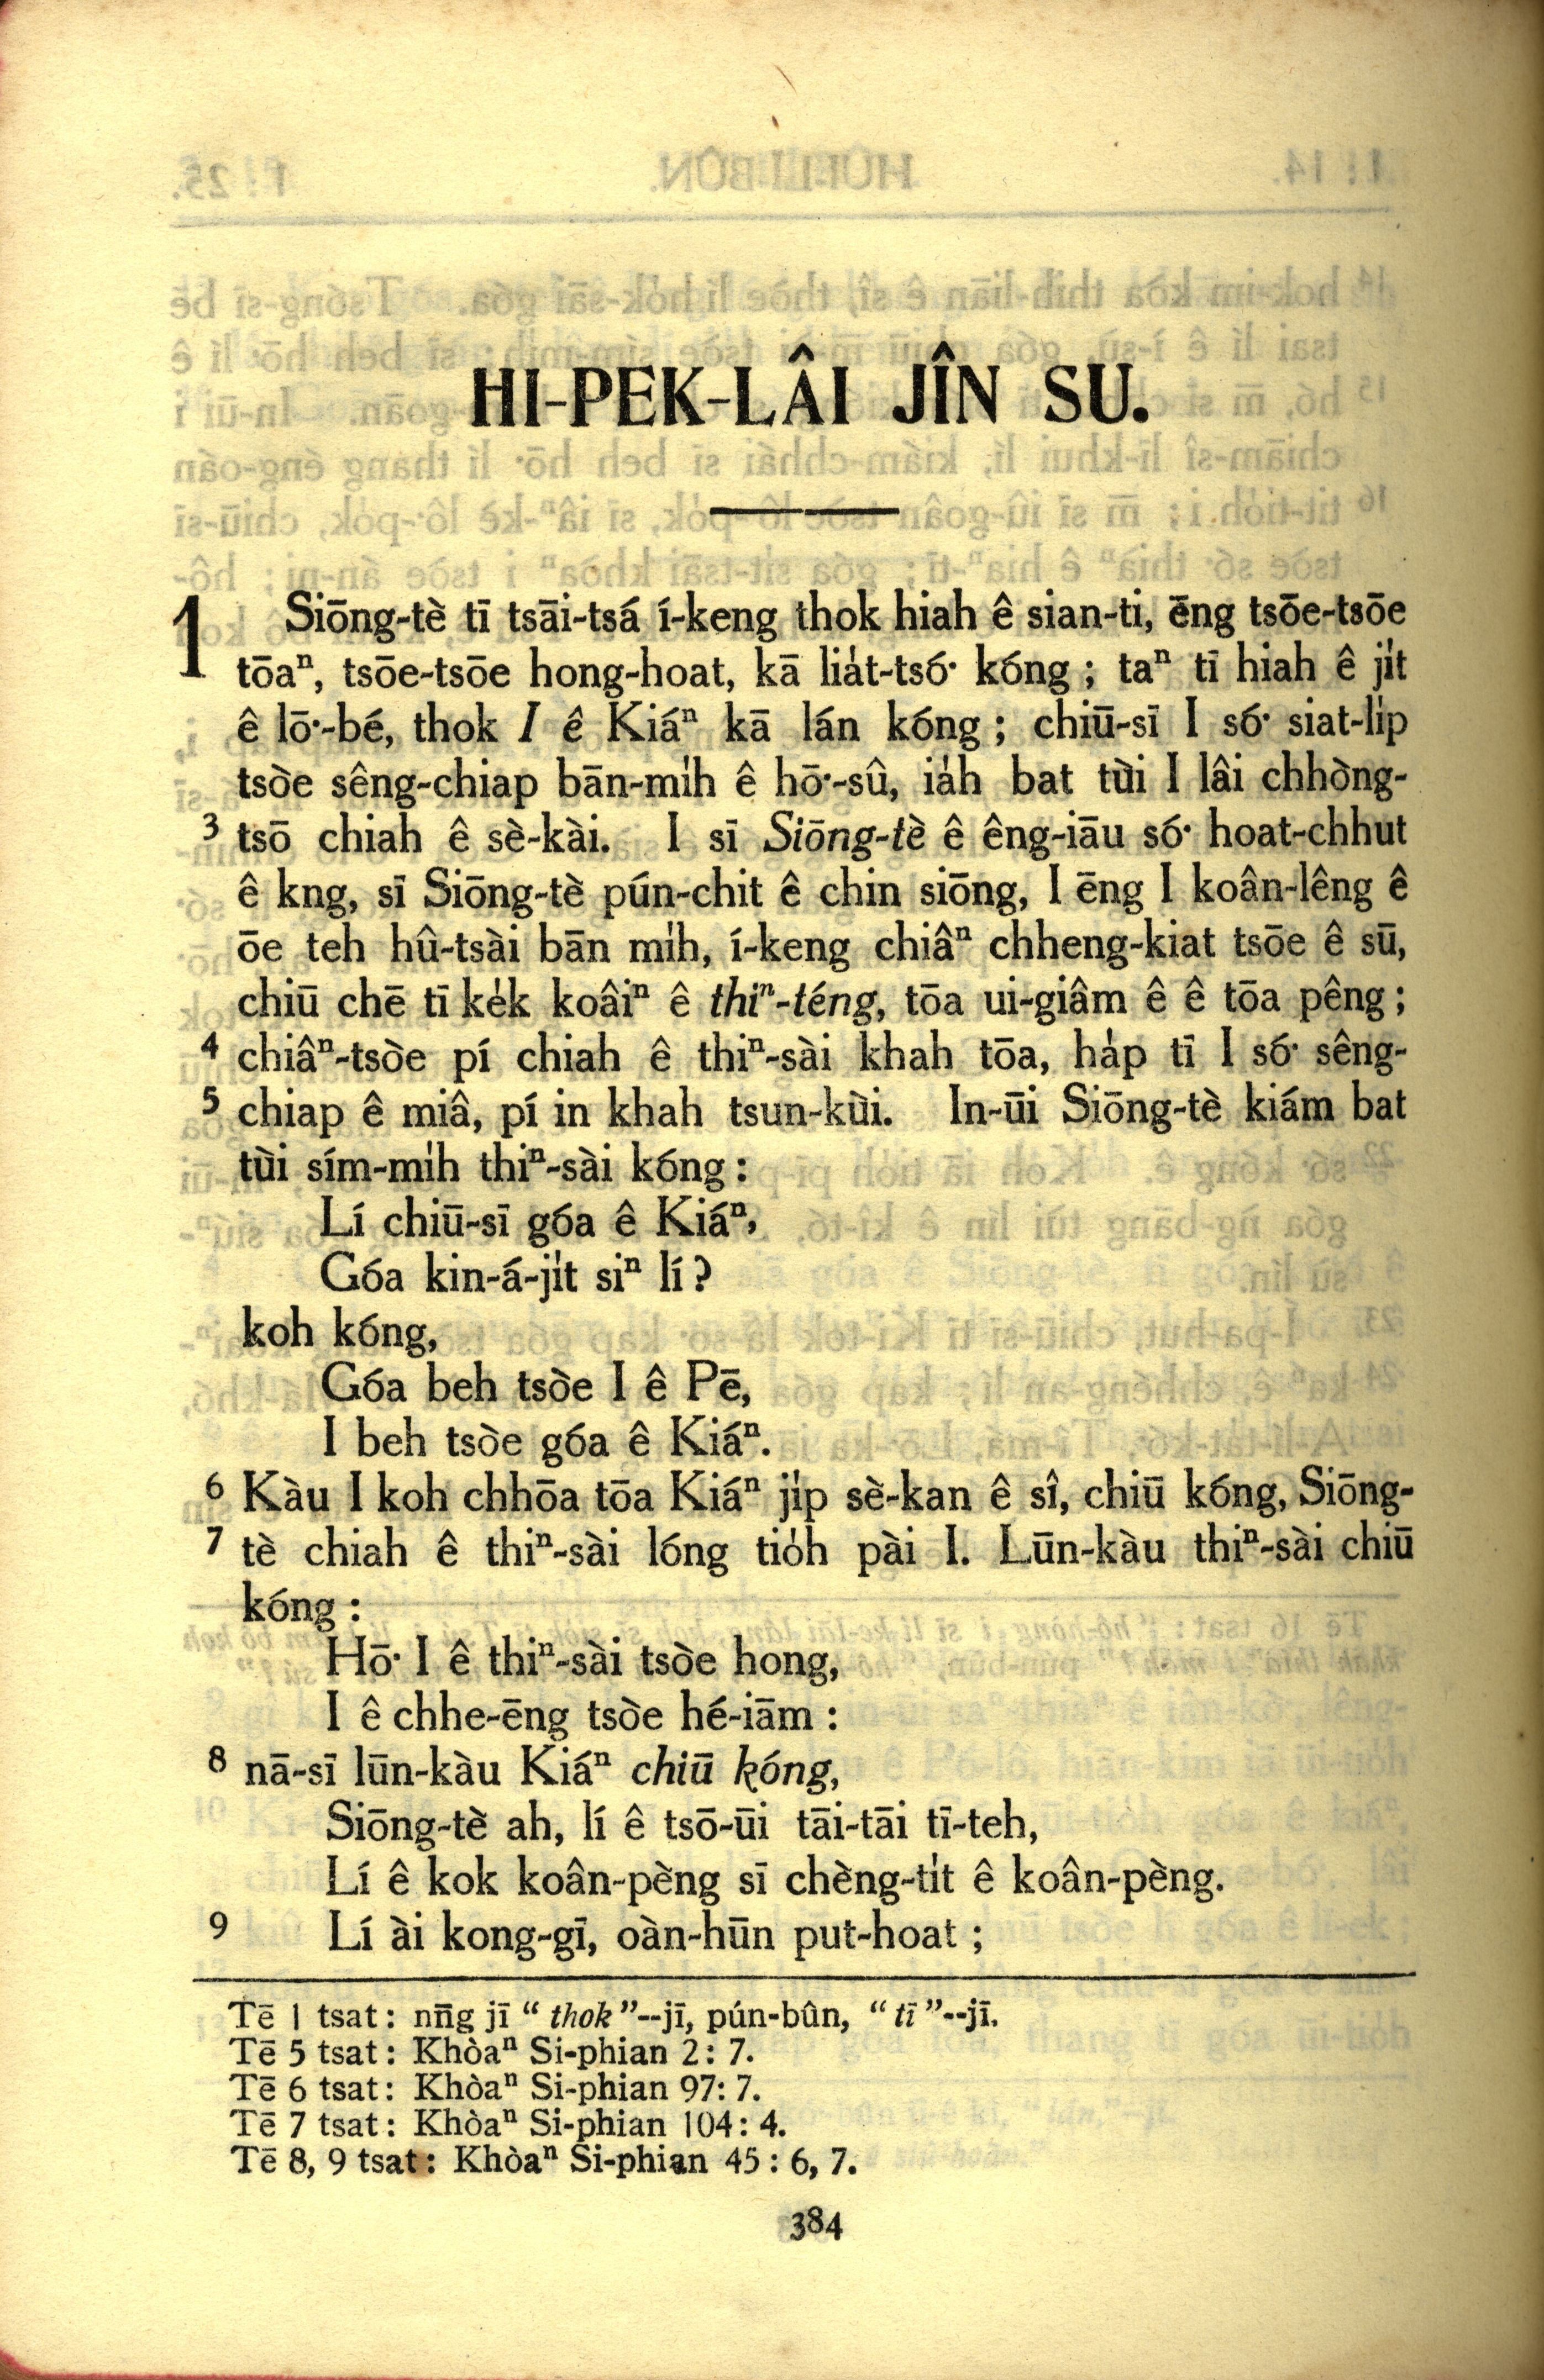 HI-PEK-LÂI JÎN SU.
1 Siōng-tè tī tsāi-tsá í-keng thok hiah ê sian-ti, ēng tsōe-tsōe
tōaⁿ, tsōe-tsōe hong-hoat, kā lia̍t-tsó͘ kóng ; taⁿ tī hiah ê ji̍t
ê lō͘-bé, thok I ê Kiáⁿ kā lán kóng ; chiū-sī I só͘ siat-li̍p
tsòe sêng-chiap bān-mi̍h ê hō͘-sû, ia̍h bat tùi I lâi chhòng-
3 tsō chiah ê sè-kài. I sī Siōng-tè ê êng-iāu só͘ hoat-chhut
ê kng, sī Siōng-tè pún-chit ê chin siōng, I ēng I koân-lêng ê
ōe teh hû-tsài bān mi̍h, í-keng chiâⁿ chheng-kiat tsōe ê sū,
chiū chē tī ke̍k koâiⁿ ê thiⁿ-téng, tōa ui-giâm ê ê tōa pêng ;
4 chiâⁿ-tsòe pí chiah ê thiⁿ-sài khah tōa, ha̍p tī I só͘ sêng-
5 chiap ê miâ, pí in khah tsun-kùi. In-ūi Siōng-tè kiám bat
tùi sím-mi̍h thiⁿ-sài kóng :
Lí chiū-sī góa ê Kiáⁿ,
Góa kin-á-ji̍t siⁿ lí ?
koh kóng,
Góa beh tsòe I ê Pē,
I beh tsòe góa ê Kiáⁿ.
6 Kàu I koh chhōa tōa Kiáⁿ ji̍p sè-kan ê sî, chiū kóng, Siōng-
7 tè chiah ê thiⁿ-sài lóng tio̍h pài I. Lūn-kàu thiⁿ-sài chiū
kóng :
Hō͘ I ê thiⁿ-sài tsòe hong,
I ê chhe-ēng tsòe hé-iām :
8 nā-sī lūn-kàu Kiáⁿ chiū kóng,
Siōng-tè ah, lí ê tsō-ūi tāi-tāi tī-teh,
Lí ê kok koân-pèng sī chèng-ti̍t ê koân-pèng.
9 Lí ài kong-gī, oàn-hūn put-hoat ;
Tē 1 tsat : nn̄g jī “ thok ”--jī, pún-bûn, “ tī ”--jī.
Tē 5 tsat : Khòaⁿ Si-phian 2 : 7.
Tē 6 tsat : Khòaⁿ Si-phian 97: 7.
Tē 7 tsat : Khòaⁿ Si-phian 104 : 4.
Tē 8, 9 tsat : Khòaⁿ Si-phian 45 : 6, 7.
384